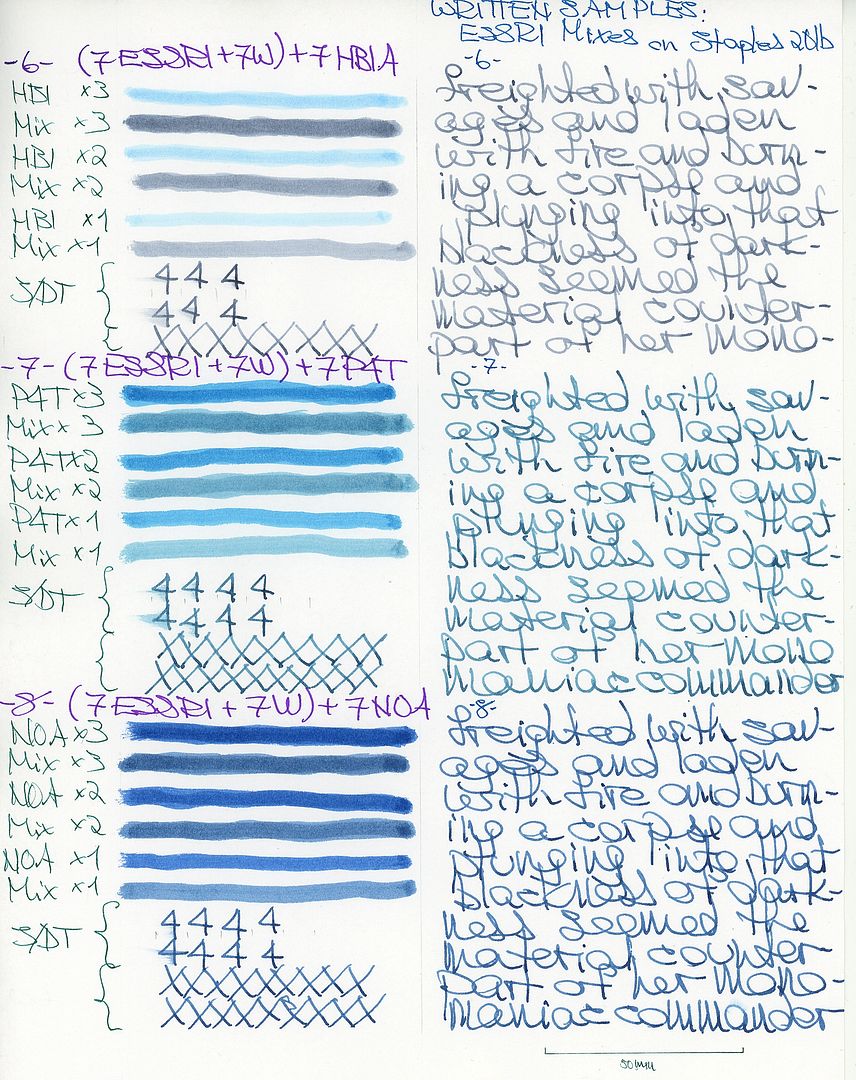 -6- (7ESSRI+7W)+7HBIA
HBI x3
Mix x3
HBI x2
Mix x2
HBI x1
Mix x1
S/DT
4 4 4
4 4 4
XXXXXXXXX
-7- (7ESSRI+7W)+7P4T
P4T x3
Mix x 3
P4T x2
Mix x2
P4T x 1
Mix x1
S/DT
4 4 4 4
4 4 4 4
XXXXXXXXX
XXXXXXXXX
-8- (7ESSRI+7W)+7NOA
NOA x3
Mix x3
NOA x2
Mix x2
NOA x1
Mix x1
S/DT
4 4 4 4
4 4 4 4
XXXXXXXXX
XXXXXXXXX
WRITTEN SAMPLES:
ESSRI Mixes on Staples 20lb
-6-
freighted with sav-
ages and laden
with fire and burn-
ing a corpse and
plunging into that
blackness of dark-
ness seemed the
material counter-
part of her mono-
-7-
freighted with sav-
ages and laden
with fire and burn-
ing a corpse and
plunging into that
blackness of dark-
ness seemed the
material counter-
part of her mono
maniac commander
-8-
freighted with sav-
ages and laden
with fire and burn-
ing a corpse and
plunging into that
blackness of dark-
ness seemed the
material counter-
part of her mono-
maniac commander
50mm